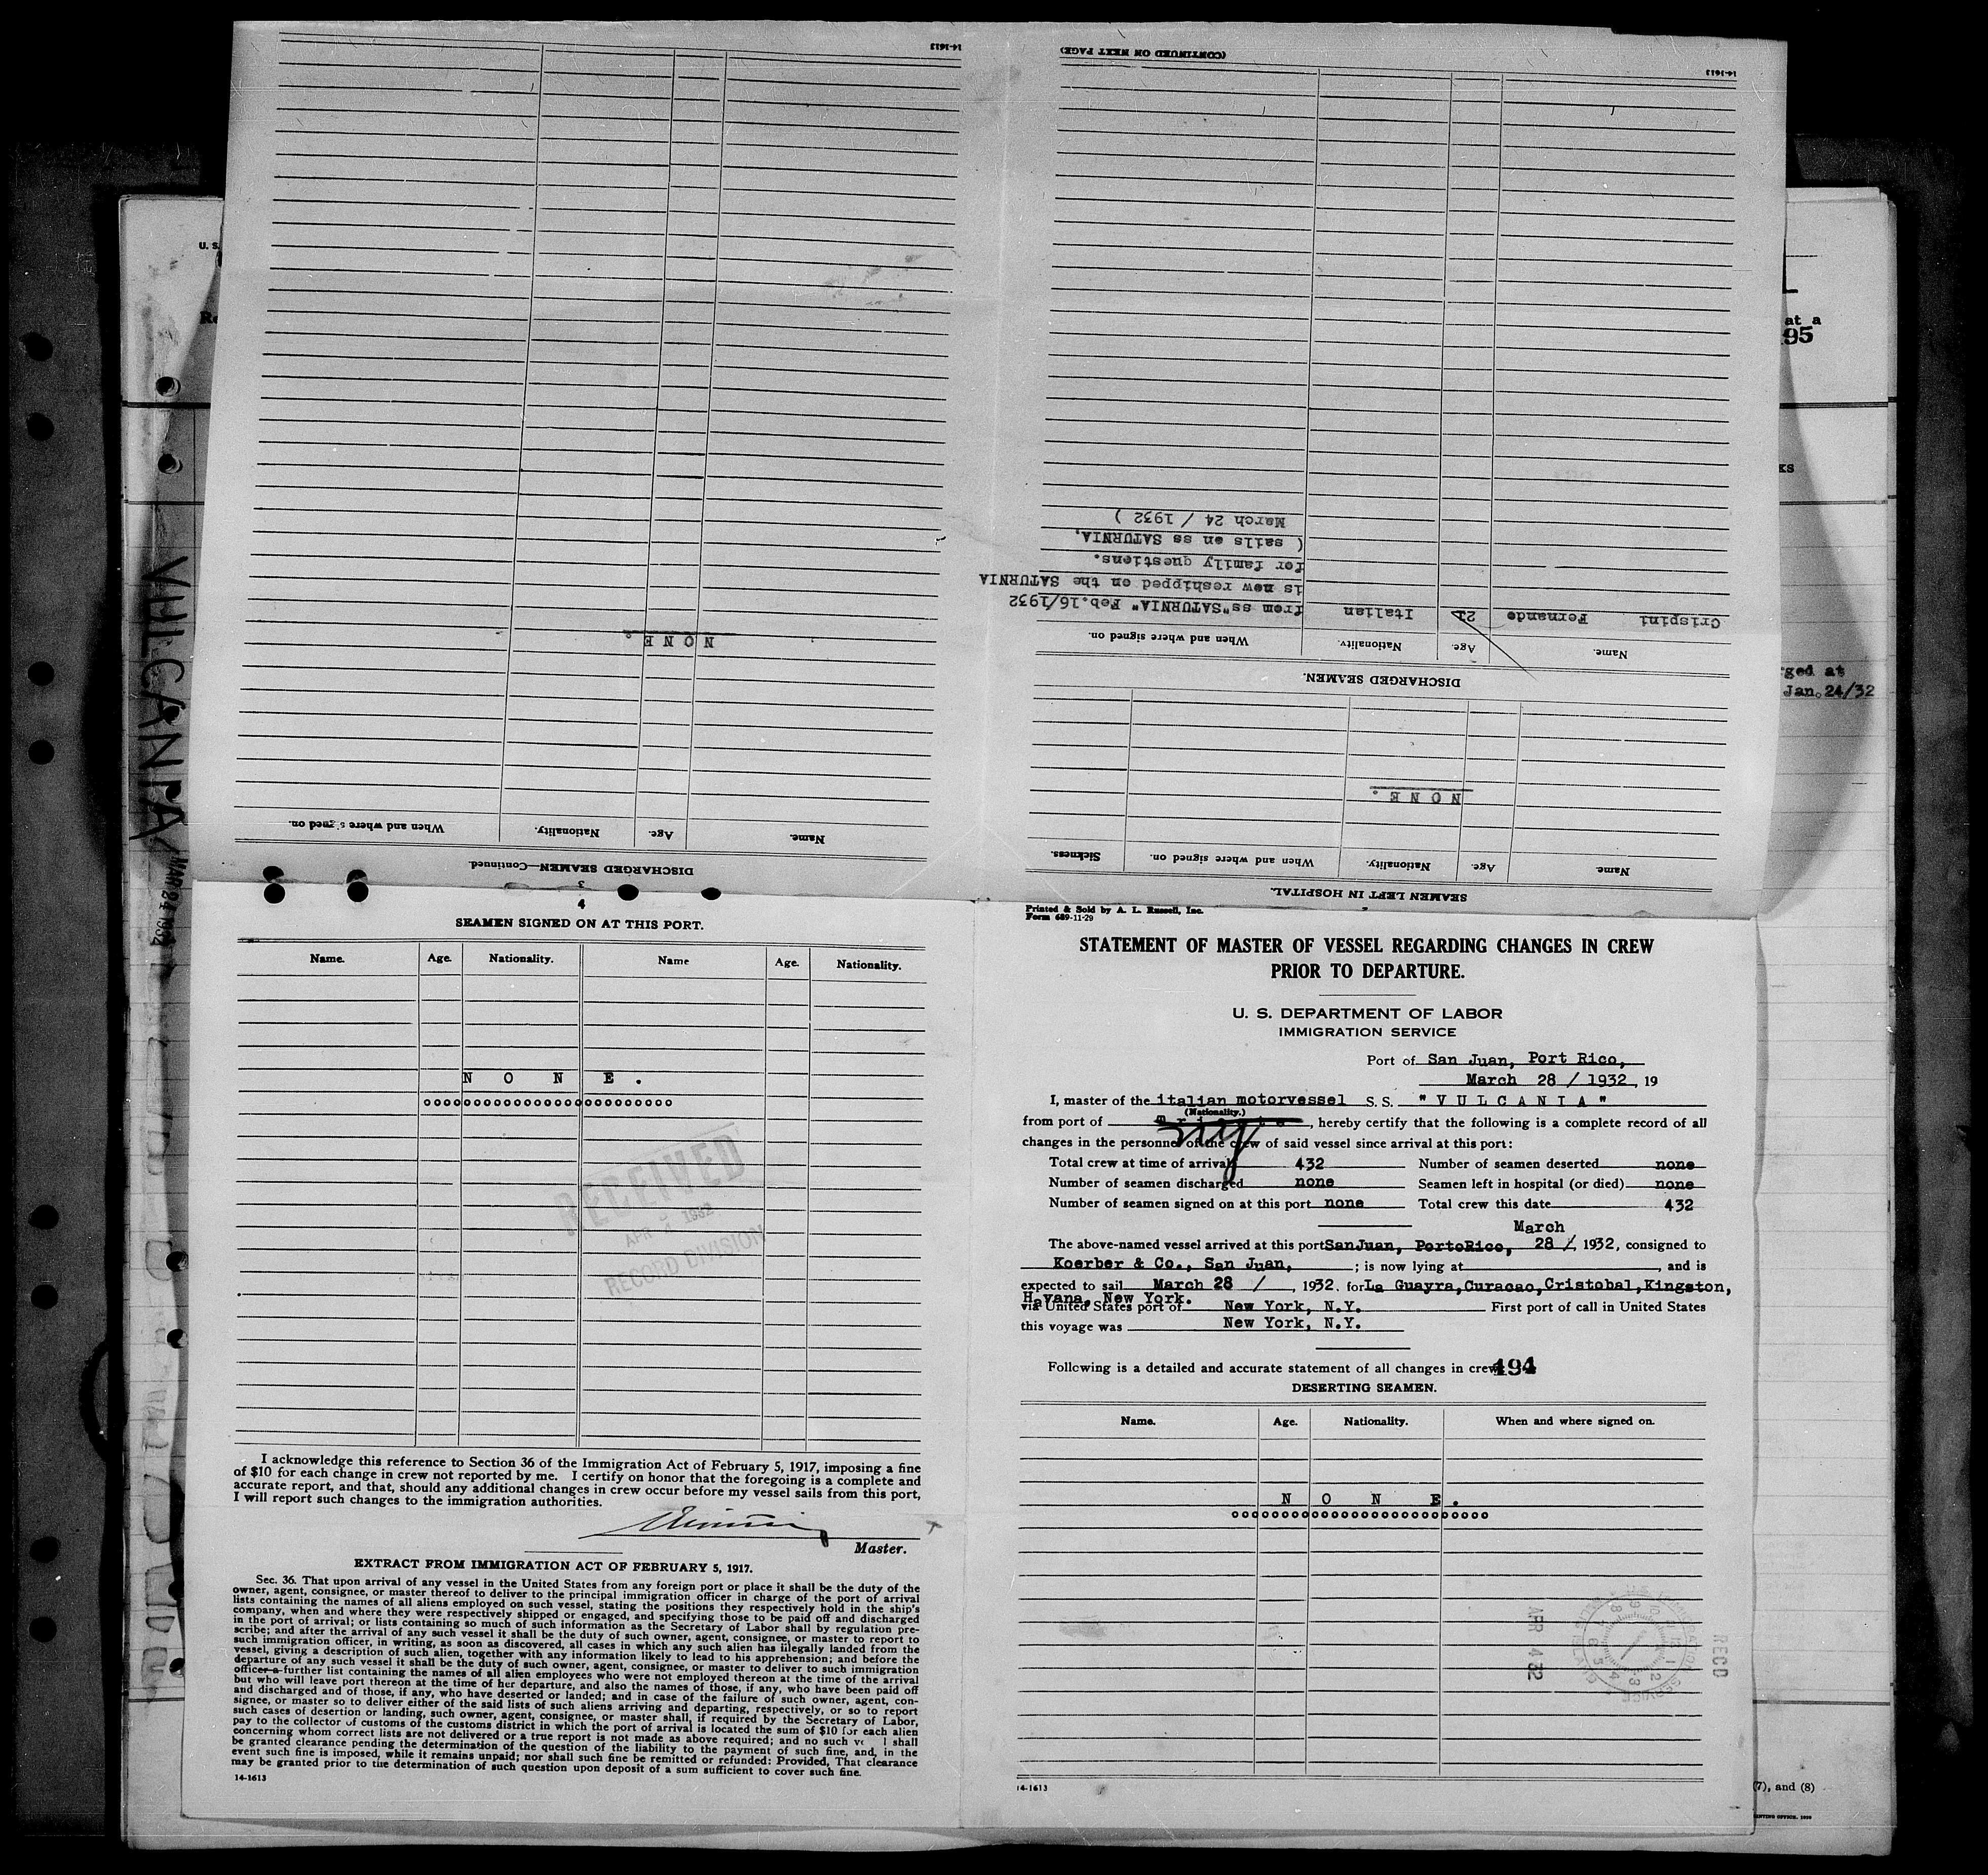 Printed & Sold by A. L. Russell, Inc.
Form 689-11-29
STATEMENT OF MASTER OF VESSEL REGARDING CHANGES IN CREW
PRIOR TO DEPARTURE.
U. S. DEPARTMENT OF LABOR
IMMIGRATION SERVICE
Port of San Juan, Port Rico,
March 28 / 1932, 19
I, master of the italian motorvessel S.S. "V U L C A N I A"
(Nationality.)
from port of , hereby certify that the following is a complete record of all
changes in the personnel of the crew of said vessel since arrival at this port:
Total crew at time of arrival 432 Number of seamen deserted none
Number of seamen discharged none Seamen left in hospital (or died) none
Number of seamen signed on at this port none Total crew this date 432
March
The above-named vessel arrived at this port SanJuan, PortoRico, 28 /, 1932, consigned to
Koerber & Co., San Juan, ; is now lying at , and is
expected to sail March 28 / , 1932. for La Guayra,Curacao,Cristobal,Kingston,
Havana, New York.
via United States port of New York, N.Y. First port of call in United States
this voyage was New York, N.Y.
Following is a detailed and accurate statement of all changes in crew:
494
DESERTING SEAMEN.
Name. Age. Nationality. When and where signed on.
N O N E .
14-1613
APR 4 32
RECD
SEAMEN LEFT IN HOSPITAL.
Name. Age. Nationality. When and where signed on. Sickness.
N O N E .
DISCHARGED SEAMEN.
Name. Age. Nationality. When and where signed on.
Crispini Fernando 21 Italian from ss"SATURNIA" Feb.16/1932
is new reshipped on the SATURNIA
for family questions.
( sails on ss SATURNIA,
March 24 / 1932 )
14-1613
(CONTINUED ON NEXT PAGE)
3
DISCHARGED SEAMEN—Continued.
Name. Age. Nationality. When and where signed on.
N O N E .
14-1613
4
SEAMEN SIGNED ON AT THIS PORT.
Name. Age. Nationality. Name Age. Nationality.
N O N E .
RECEIVED
APR 4 1932
RECORD DIVISION
I acknowledge this reference to Section 36 of the Immigration Act of February 5, 1917, imposing a fine
of $10 for each change in crew not reported by me. I certify on honor that the foregoing is a complete and
accurate report, and that, should any additional changes in crew occur before my vessel sails from this port,
I will report such changes to the immigration authorities.
Master.
EXTRACT FROM IMMIGRATION ACT OF FEBRUARY 5, 1917.
Sec. 36. That upon arrival of any vessel in the United States from any foreign port or place it shall be the duty of the
owner, agent, consignee, or master thereof to deliver to the principal immigration officer in charge of the port of arrival
lists containing the names of all aliens employed on such vessel, stating the positions they respectively hold in the ship's
company, when and where they were respectively shipped or engaged, and specifying those to be paid off and discharged
in the port of arrival; or lists containing so much of such information as the Secretary of Labor shall by regulation pre-
scribe; and after the arrival of any such vessel it shall be the duty of such owner, agent, consignee, or master to report to
such immigration officer, in writing, as soon as discovered, all cases in which any such alien has illegally landed from the
vessel, giving a description of such alien, together with any information likely to lead to his apprehension; and before the
departure of any such vessel it shall be the duty of such owner, agent, consignee, or master to deliver to such immigration
officer a further list containing the names of all alien employees who were not employed thereon at the time of the arrival
but who will leave port thereon at the time of her departure, and also the names of those, if any, who have been paid off
and discharged and of those, if any, who have deserted or landed; and in case of the failure of such owner, agent, con-
signee, or master so to deliver either of the said lists of such aliens arriving and departing, respectively, or so to report
such cases of desertion or landing, such owner, agent, consignee, or master shall, if required by the Secretary of Labor,
pay to the collector of customs of the customs district in which the port of arrival is located the sum of $10 for each alien
concerning whom correct lists are not delivered or a true report is not made as above required; and no such ve l shall
be granted clearance pending the determination of the question of the liability to the payment of such fine, and, in the
event such fine is imposed, while it remains unpaid; nor shall such fine be remitted or refunded: Provided, That clearance
may be granted prior to the determination of such question upon deposit of a sum sufficient to cover such fine.
14-1613
VULCANIA
MAR 24 1932
U. S.
at a
95
KS
ged at
Jan. 24/32
(7), and (8)